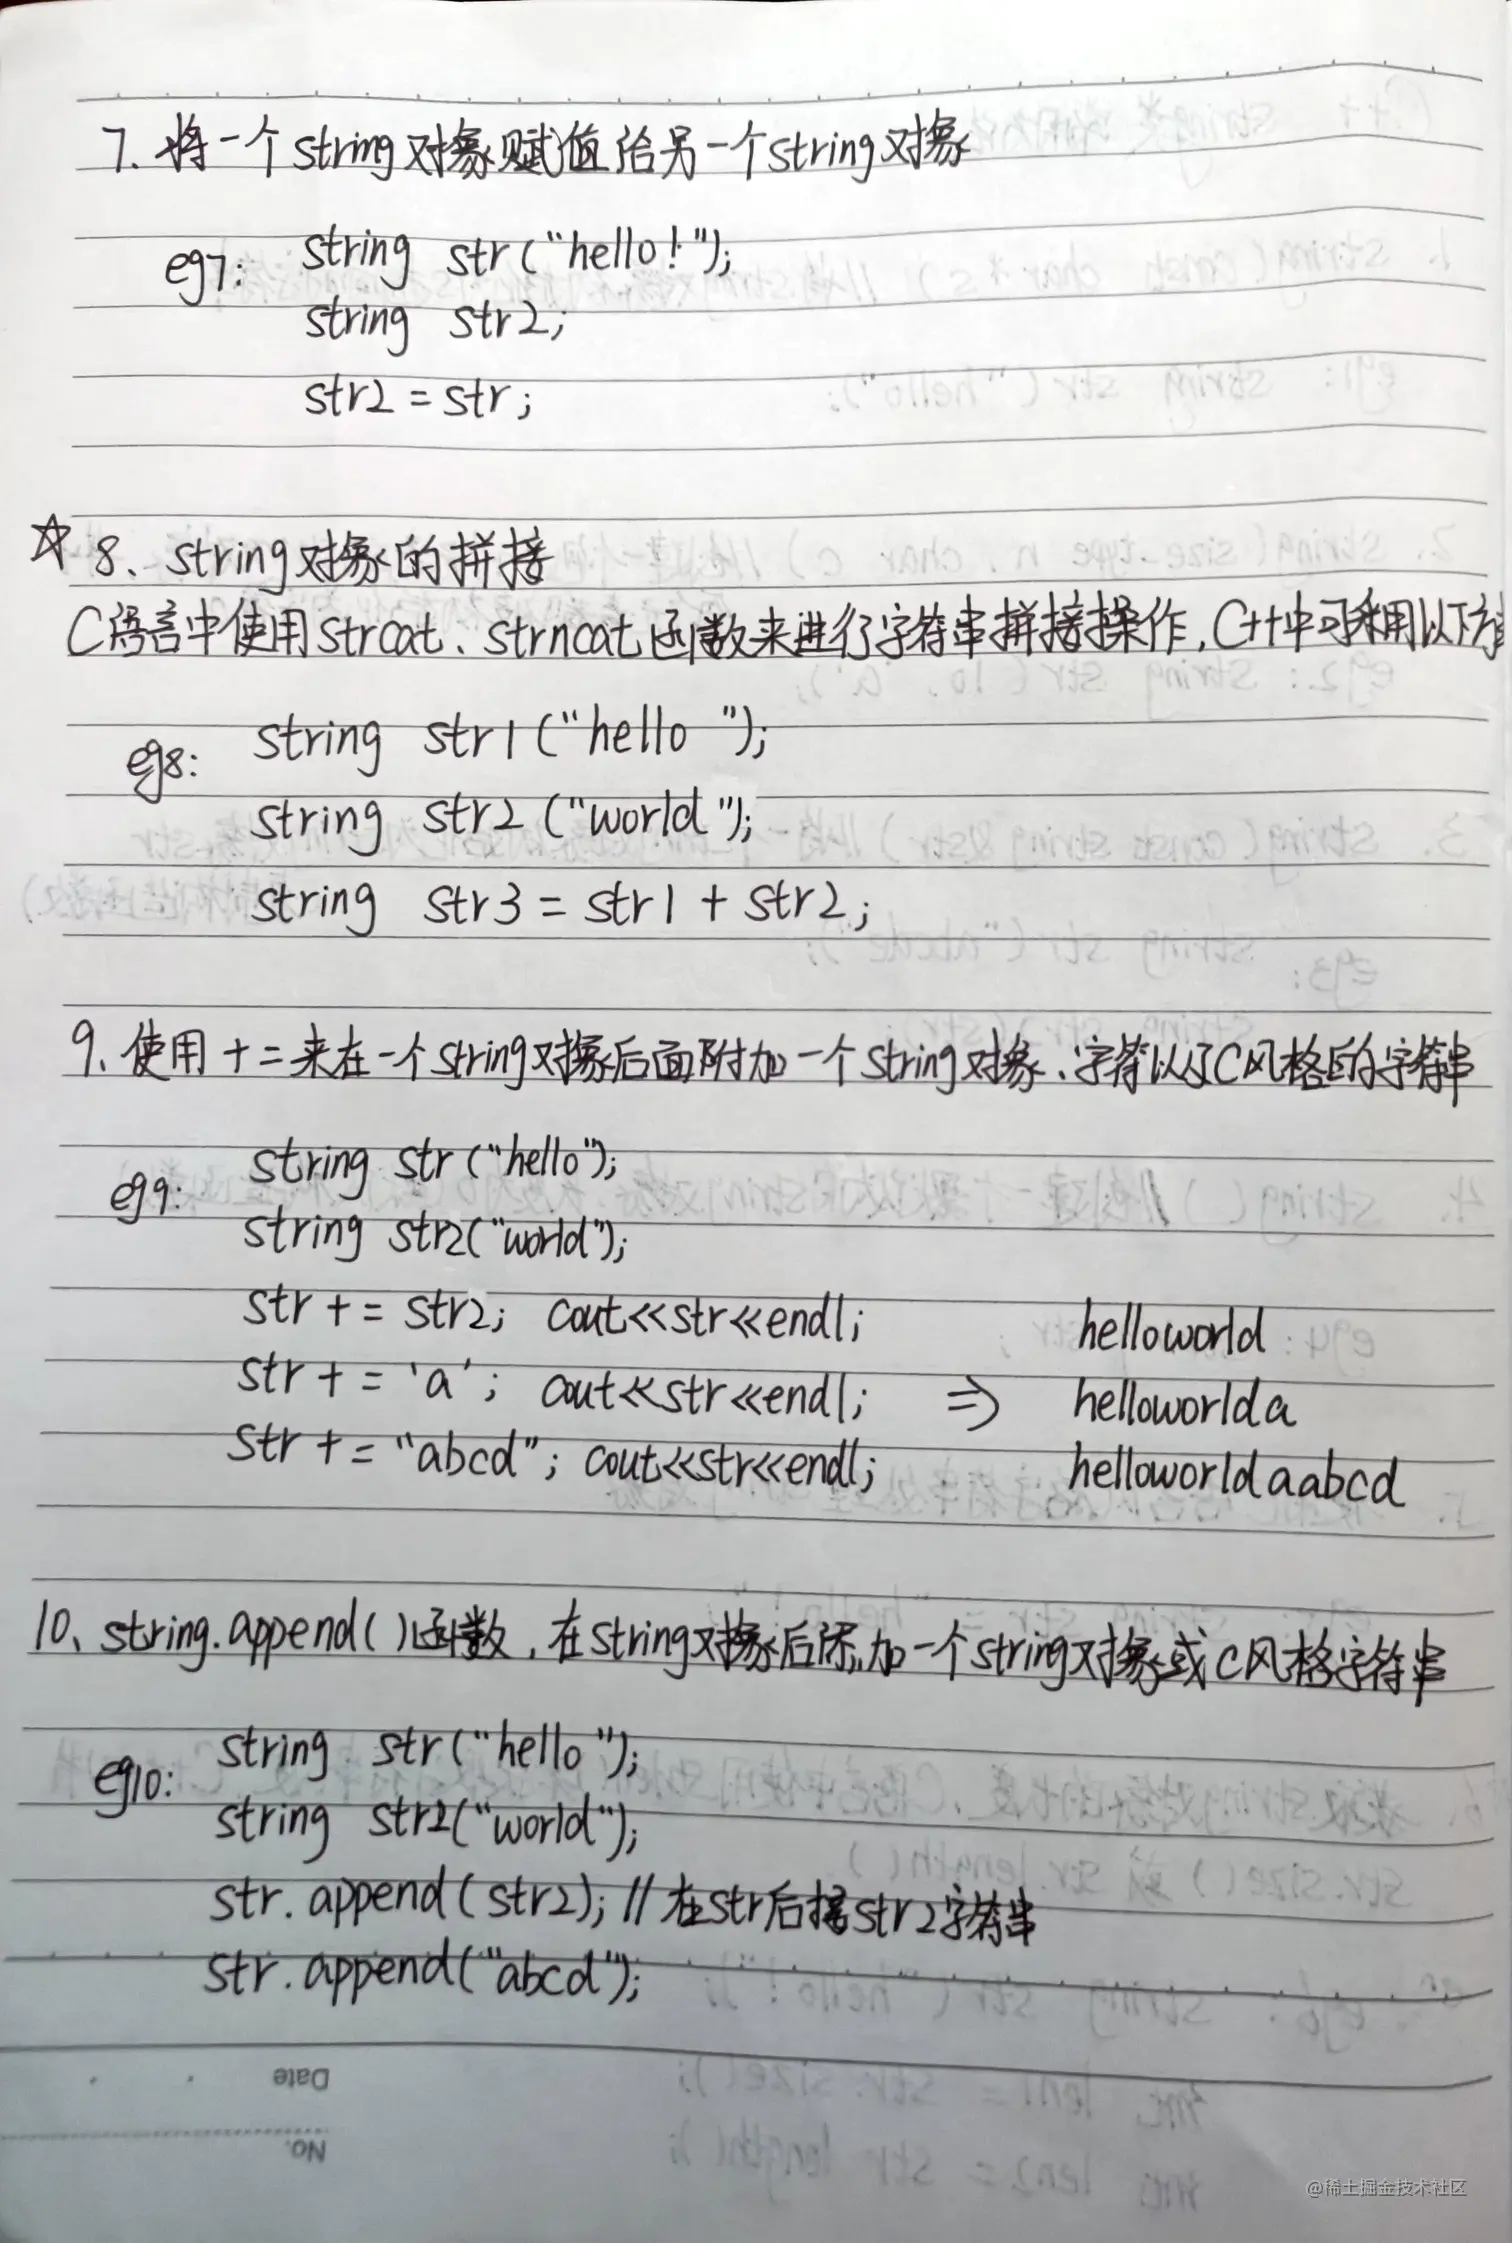 7、将一个string对象赋值给另一个string对象
eg7: string str("hello!");
string str2;
str2 = str;
☆ 8、string对象的拼接
C语言中使用strcat、strncat函数来进行字符串拼接操作,C++中可利用以下
eg8: string str1("hello ");
string str2("world");
string str3 = str1 + str2;
9、使用+=来在一个string对象后面附加一个string对象、字符以及C风格的字符串
eg9: string str("hello");
string str2("world");
str += str2; cout<<str<<endl; helloworld
str += 'a'; cout<<str<<endl; => helloworlda
str += "abcd"; cout<<str<<endl; helloworldaabcd
10、string.append()函数,在string对象后添加一个string对象或C风格字符串
eg10: string str("hello");
string str2("world");
str.append(str2); //在str后接str2字符串
str.append("abcd");
Date
No.
@稀土掘金技术社区